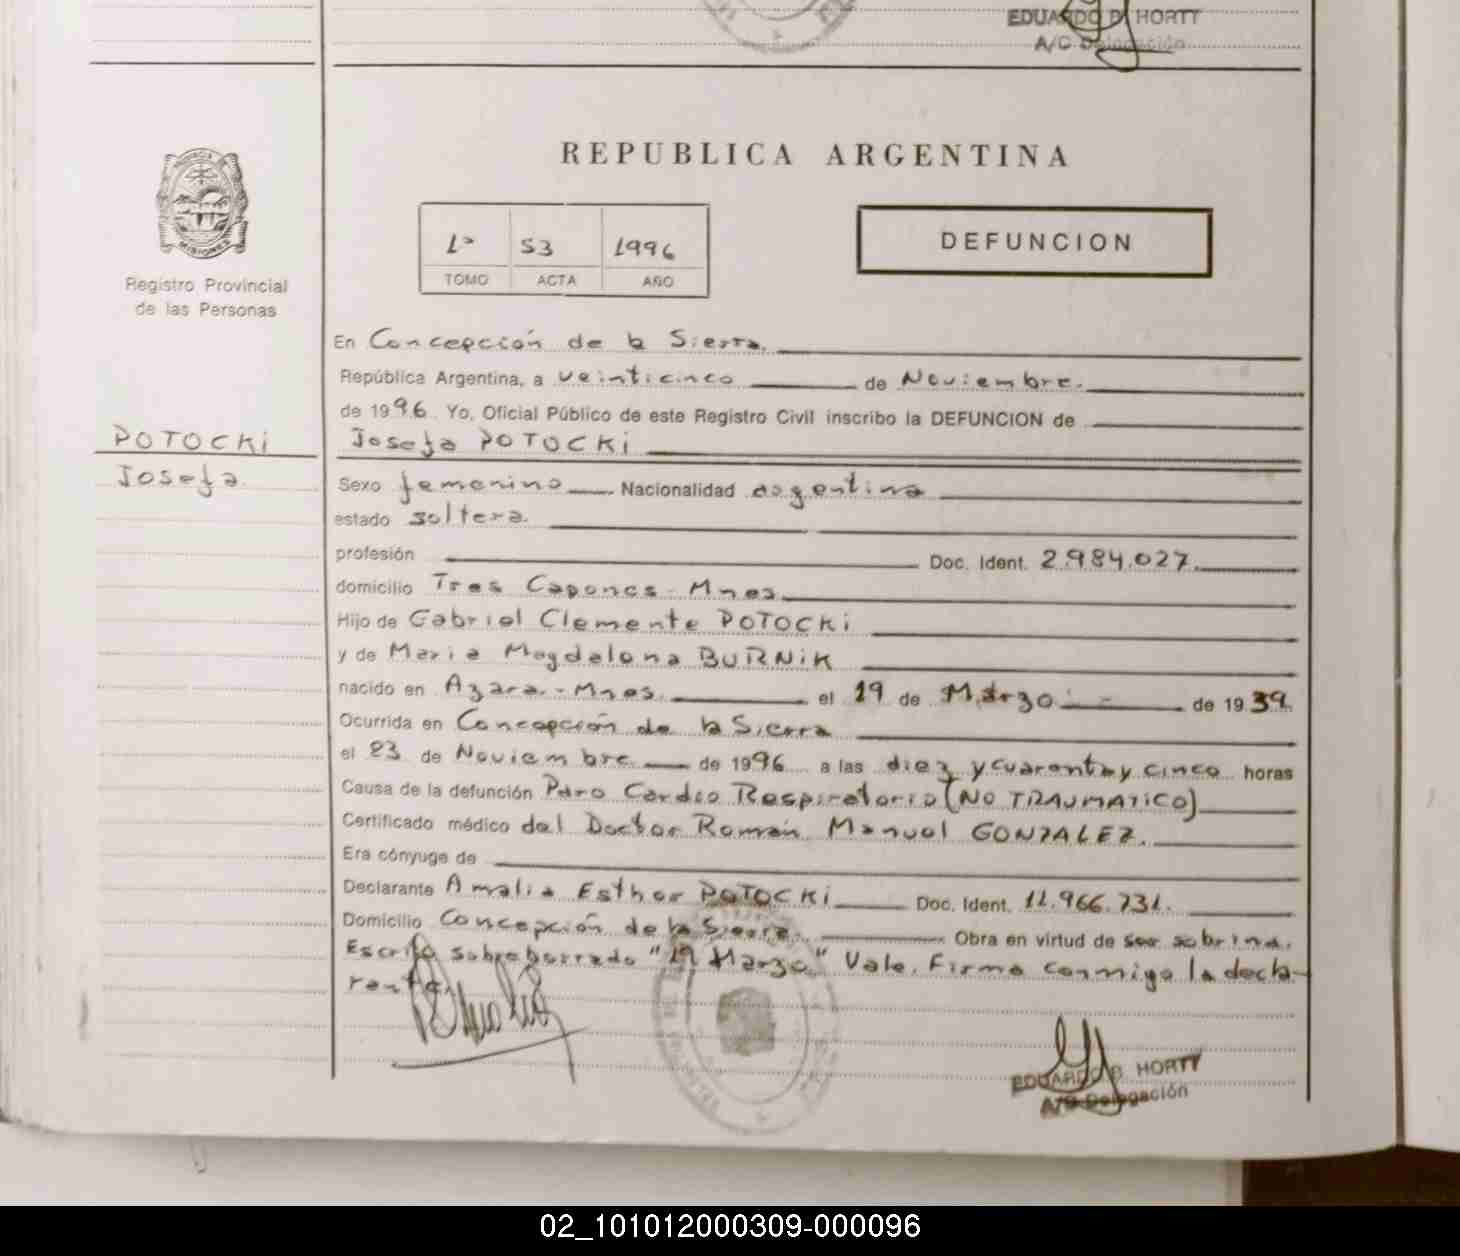 EDUARDO B. HORTY
A/C Delegación
REPUBLICA ARGENTINA
1º 53 1996
TOMO ACTA AÑO
DEFUNCION
PROVINCIA DE
MISIONES
Registro Provincial
de las Personas
En Concepción de la Sierra.
República Argentina, a veinticinco de Noviembre.
de 1996. Yo, Oficial Público de este Registro Civil inscribo la DEFUNCION de
POTOCKi
Josefa POTOCKi
Josefa.
Sexo femenino Nacionalidad argentina
estado soltera.
profesión Doc. Ident. 2.984.027.
domicilio Tres Capones - Mnes.
Hijo de Gabriel Clemente POTOCKi
y de Maria Magdalena BURNiK
nacido en Azara.-Mnes. el 19 de Marzo.- de 1939.
Ocurrida en Concepción de la Sierra
el 23 de Noviembre de 1996 a las diez y cuarenta y cinco horas
Causa de la defunción Paro Cardio Respiratorio (NO TRAUMATICO)
Certificado médico del Doctor Román Manuel GONZALEZ.
Era cónyuge de
Declarante Amalia Esther POTOCKi Doc. Ident. 11.966.731.
Domicilio Concepción de la Sierra. Obra en virtud de ser sobrina.
Escrito sobreborrado "19 Marzo" Vale. Firma conmigo la decla-
rante.
EDUARDO B. HORTY
A/C Delegación
02_101012000309-000096